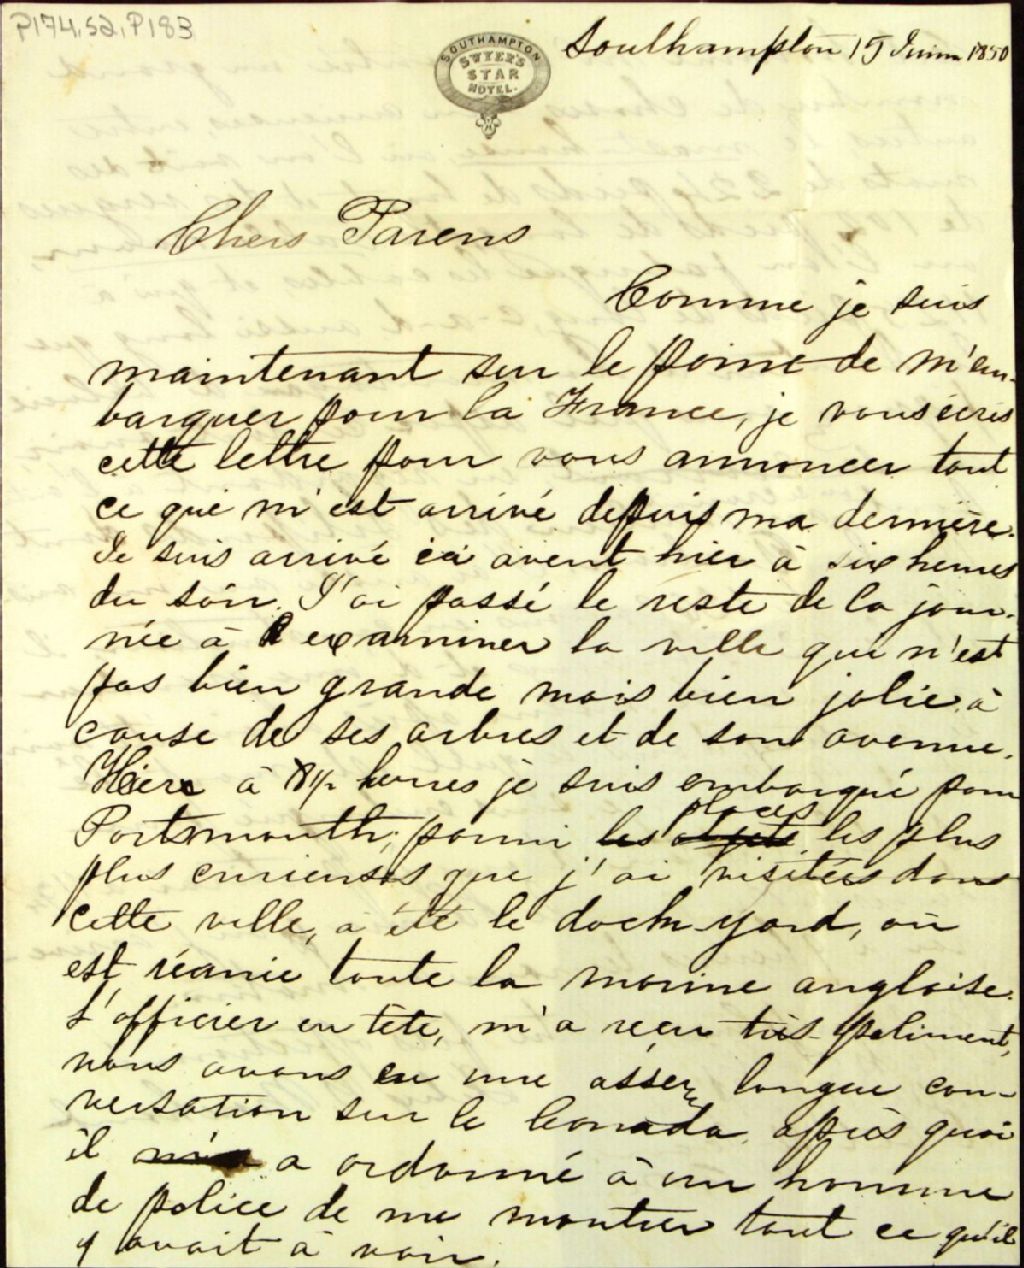 P174,S2,P183
SOUTHAMPTON
SWYER'S
STAR
HOTEL.
Southampton 15 Juin 1850
Chers Parens
Comme je suis
maintenant sur le point de m'em-
barquer pour la France, je vous écris
cette lettre pour vous annoncer tout
ce que m'est arrivé depuis ma dernière.
Je suis arrivé ici avent hier à six heures
du soir. J'ai passé le reste de la jour-
née à examiner la ville qui n'est
pas bien grande mais bien jolie à
cause de ses arbres et de son avenue.
Hier à 8½ heures je suis embarqué pour
Portsmouth, parmi les objets places les plus
plus curieuses que j'ai visitées dans
cette ville, a été le dock-yard, où
est réunie toute la marine angloise.
L'officier en tête, m'a reçu très-poliment,
nous avons eu une assez longue con-
versation sur le Canada après quoi
il a ordonné à un homme
de police de me montrer tout ce qu'il
y avait à voir.